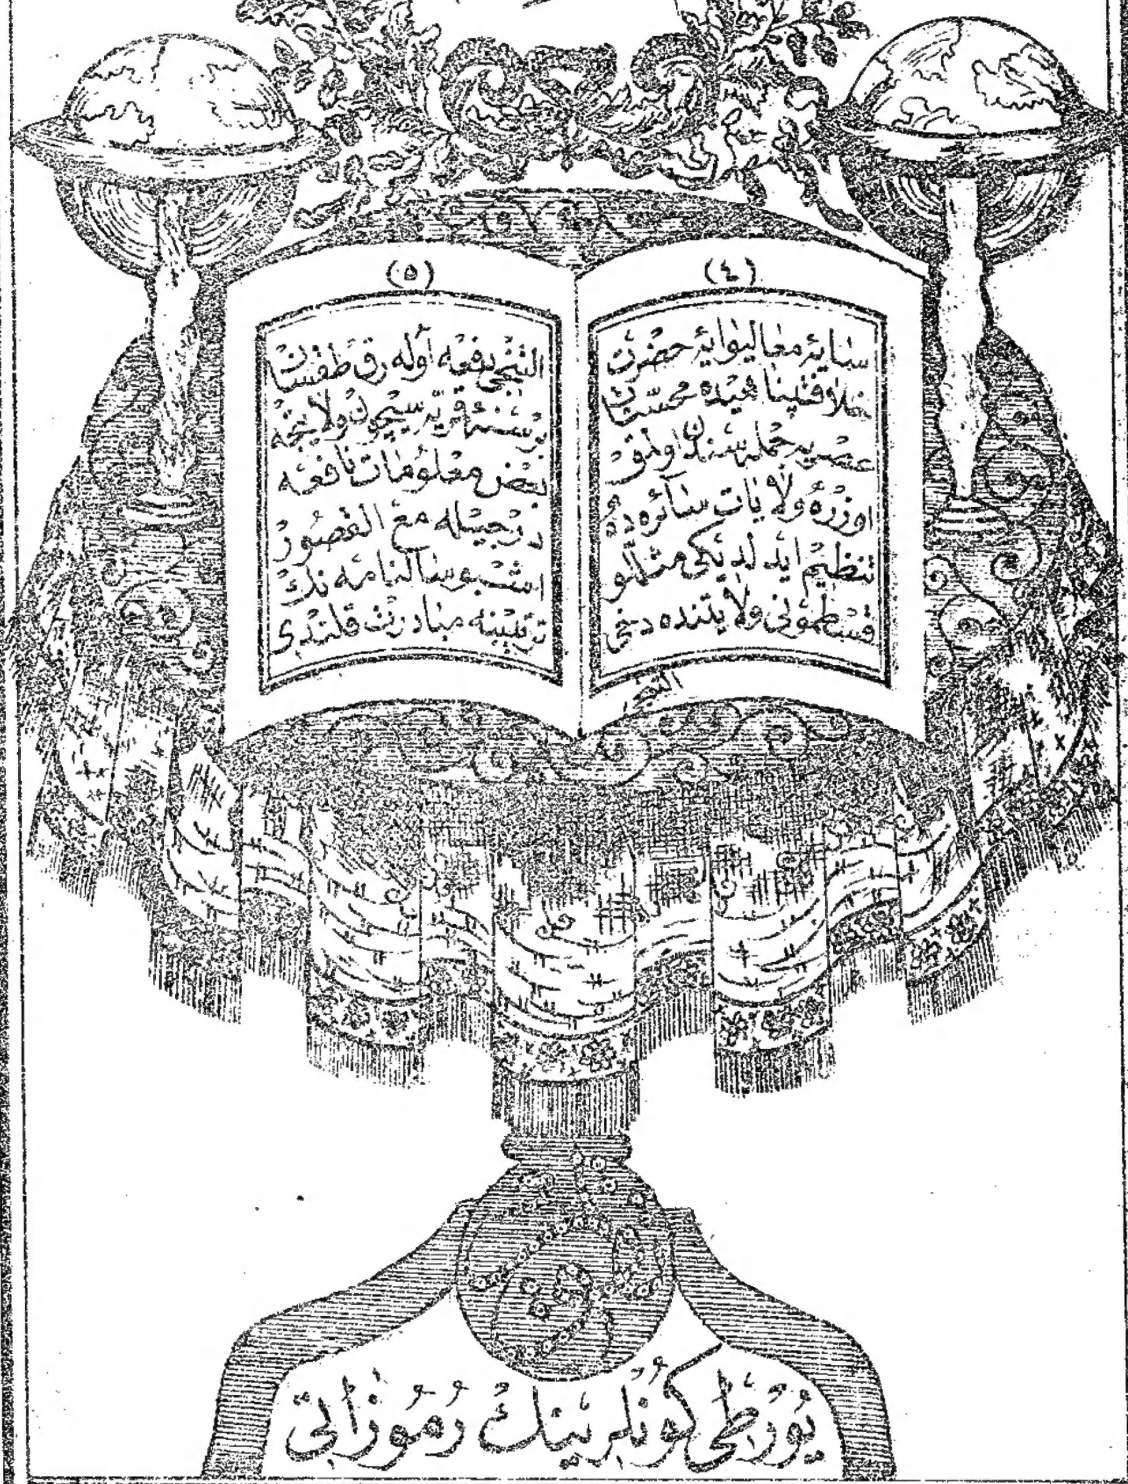 (٤)
سایهٔ معالیوایهٔ حضرت
خلافتپناهیده محسنات
عصریه جمله سندن اولمق
اوزره ولایات سائره ده
تنظیم ایدلدیکی مثللو
قسطمونی ولایتنده دخی
التنجی
(٥)
التنجی دفعه اوله رق طقسان
بر سنهٔ قمریه سیچون ولایتجه
بعض معلومات نافعه
درجیله مع القصور
اشبو سالنامه نك
ترتیبنه مبادرت قلندی
یورطی کونلرینك رموزاتی